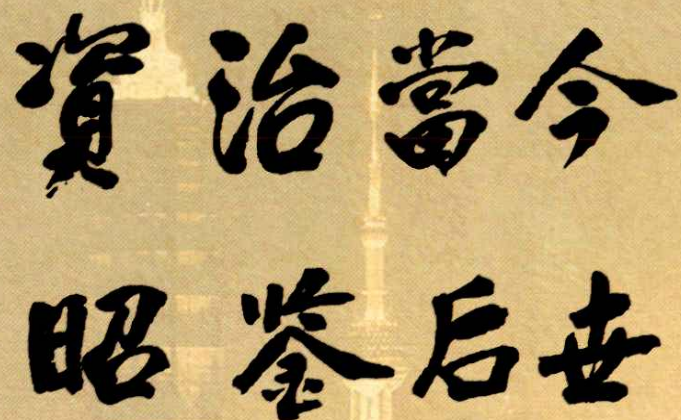 資治當今
昭鉴后世